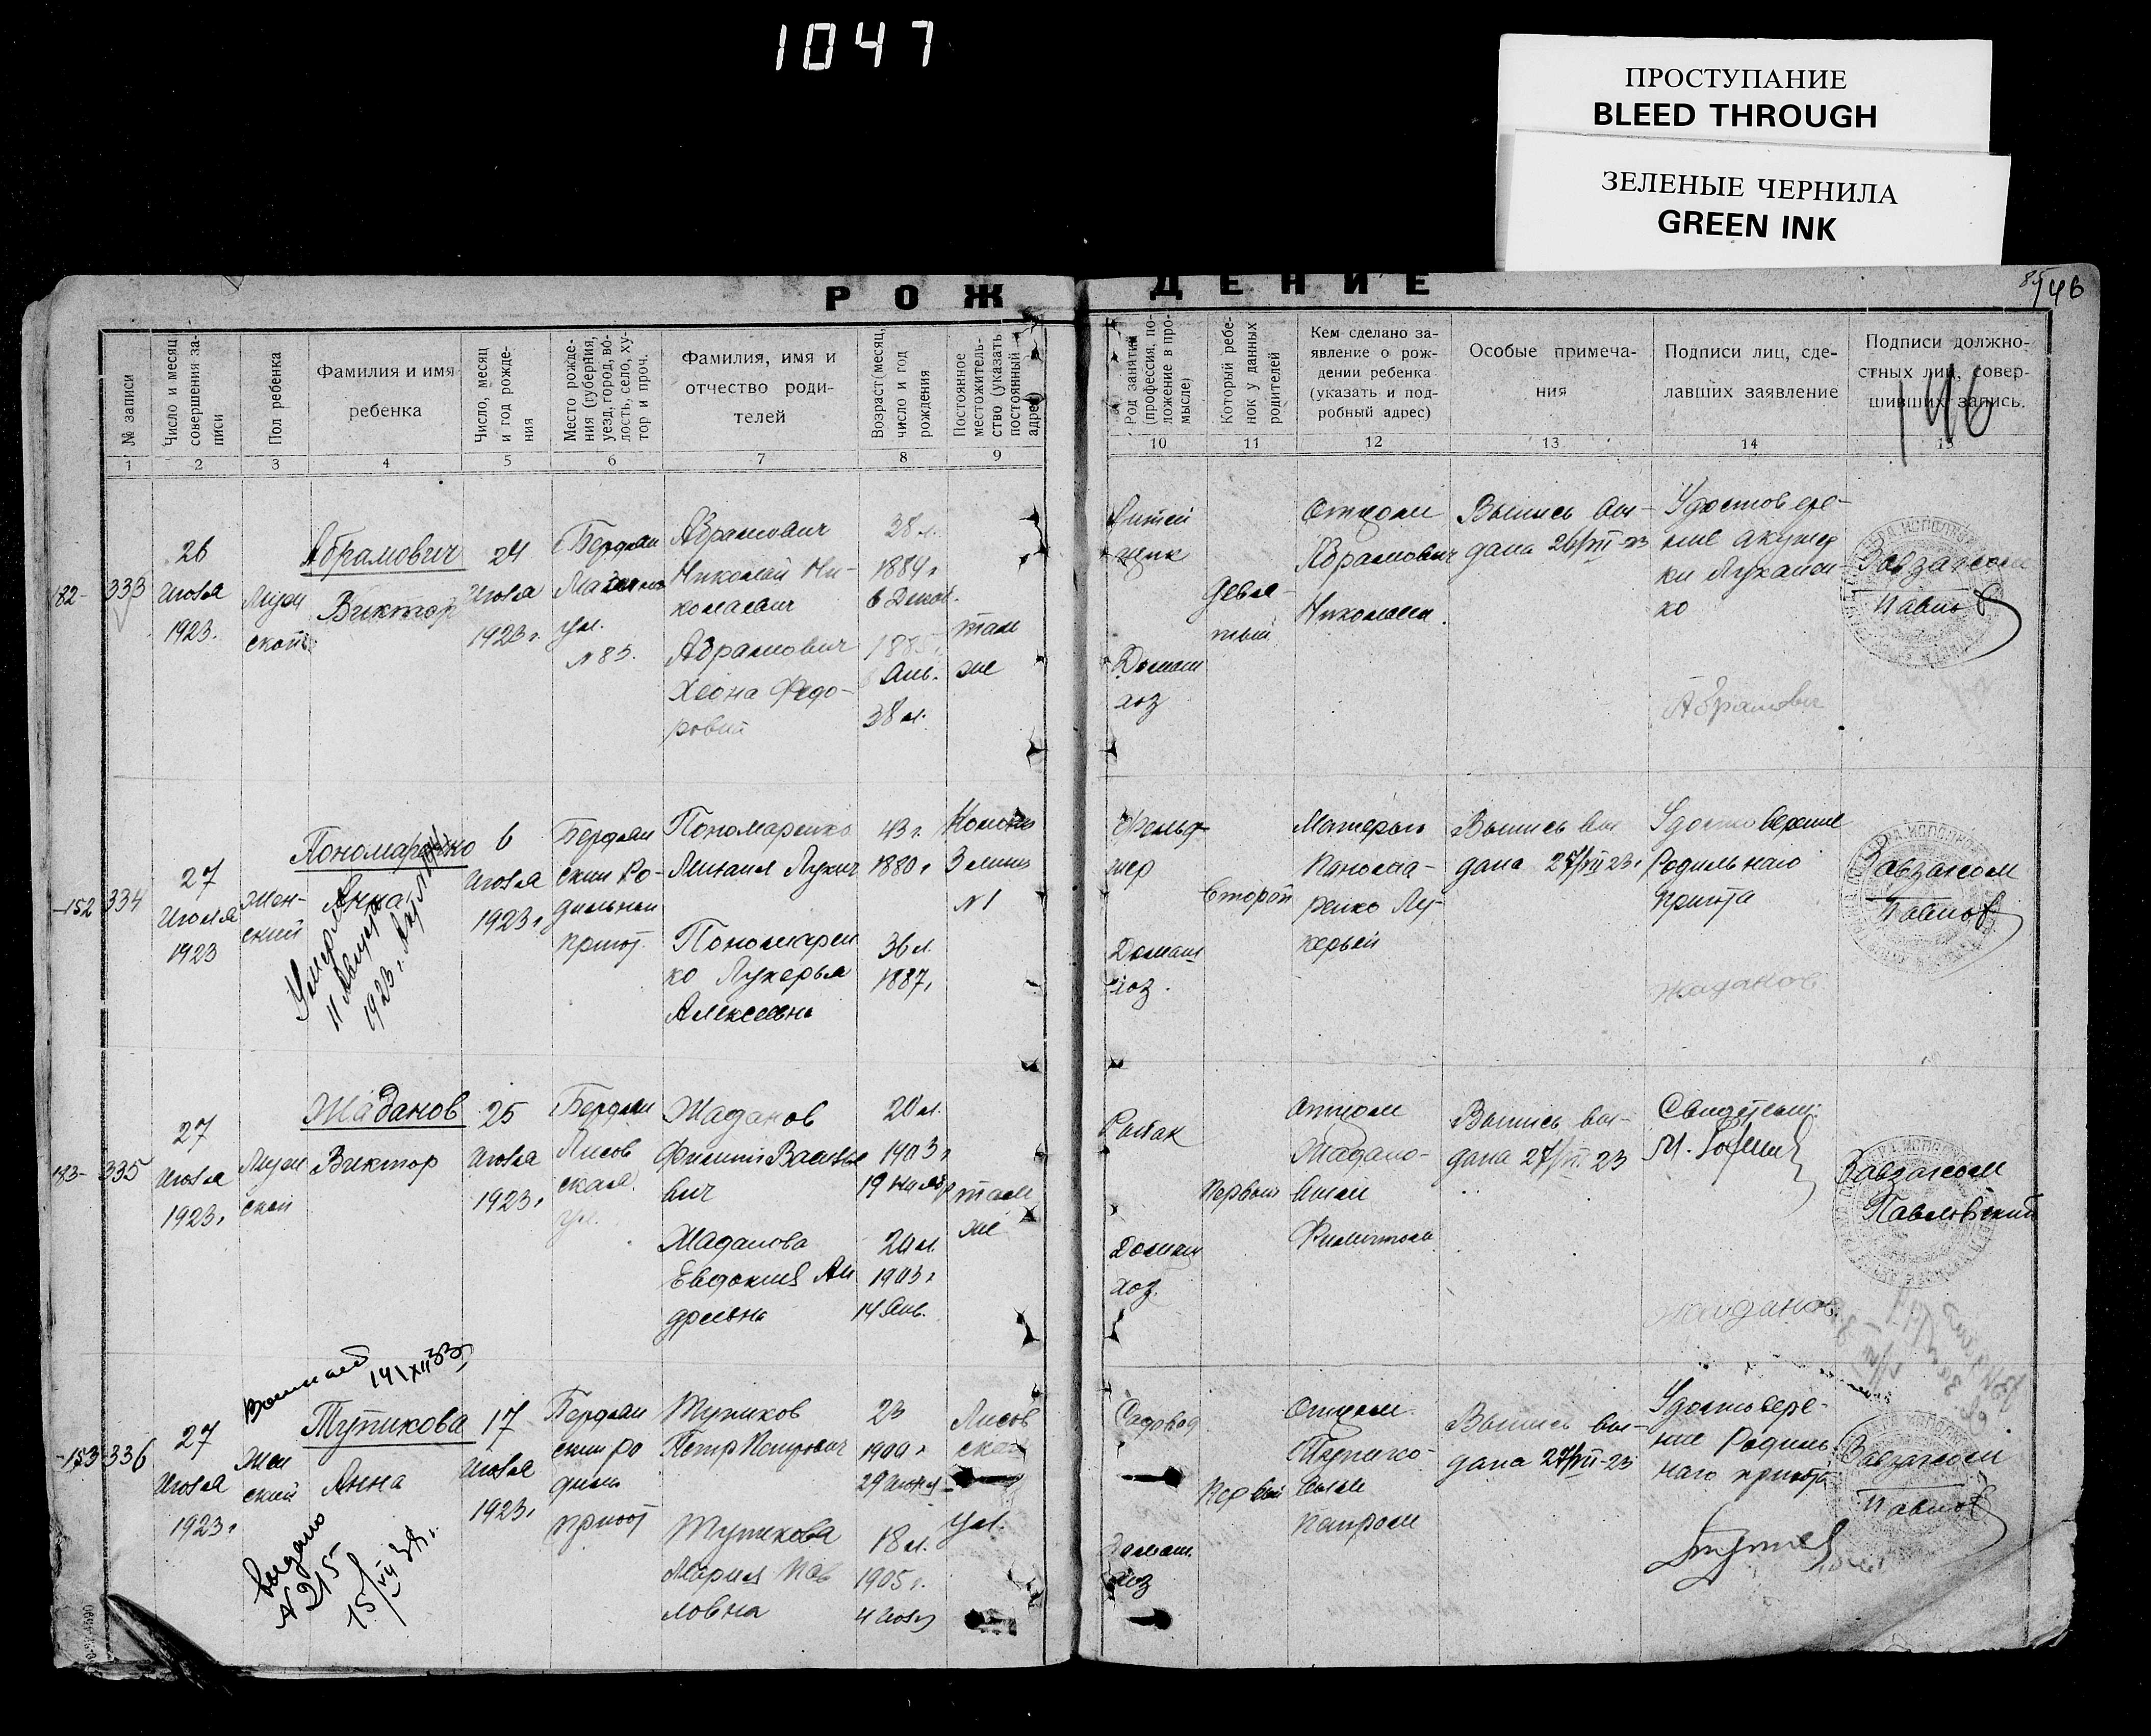 1047
ПРОСТУПАНИЕ
BLEED THROUGH
ЗЕЛЕНЫЕ ЧЕРНИЛА
GREEN INK
РОЖДЕНИЕ
146
146
№ записи
Число и месяц
совершения за-
писи
Пол ребенка
Фамилия и имя
ребенка
Число, месяц
и год рожде-
ния
Место рожде-
ния (губерния,
уезд, город, во-
лость, село, ху-
тор и проч.
Фамилия, имя и
отчество роди-
телей
Возраст (месяц,
число и год
рождения
Постоянное
местожитель-
ство (указать
постоянный
адрес)
Род занятий
(профессия, по-
ложение в про-
мысле)
Который ребе-
нок у данных
родителей
Кем сделано за-
явление о рож-
дении ребенка
(указать и под-
робный адрес)
Особые примеча-
ния
Подписи лиц, сде-
лавших заявление
Подписи должно-
стных лиц, совер-
шивших запись.
1 2 3 4 5 6 7 8 9 10 11 12 13 14 15
182-
333
26
Июля
1923.
Муж
ской
Абрамович
Виктор
24
Июля
1923 г.
Бердян
ул.
№ 83.
Абрамович
Николай Ни-
колаевич
Абрамович
Федо-
38 л.
1884 г
6 Декаб.
1885
Янв.
38 л.
там
же
Литей
щик
Домаш
хоз
Девя-
тый
Отцом
Абрамович
Николаем.
Выпись вы-
дана 26/VII-23
Удостовере-
ние акушер
ки
Абрамович
Завзагсом
Павлов
-152
334
27
Июля
1923
Жен-
ский
Пономаренко
Анна
Умерла
11 Августа
1923 г.
6
Июля
1923 г
Бердян
ский Ро-
дильный
приют.
Пономаренко
Михаил Лукич
Пономарен
ко Лукерья
Алексеевна
43 г.
1880 г
36 л
1887,
Колония
3 линия
№ 1
Фельд-
шер
Домаш
хоз.
Второй
Матерью
Понома-
ренко Лу-
керьей
Выпись вы
дана 27/VII 23 г
Удостоверение
Родильнаго
приюта
Завзагсом
Павлов
183-
335
27
Июля
1923,
Муж
ской
Жаданов
Виктор
25
Июля
1923,
Бердян
Лисов
ская
ул.
Жаданов
Филипп Василье
вич
Жаданова
Евдокия Ан
дреевна
20 л.
1903 г
19 Ноябр
20 л
1903 г
14 Янв.
там
же
Рыбак
Домаш
хоз.
Первый
Отцом
Жадано-
вым
Филиппом
Выпись вы-
дана 27/VII. 23
Свидетель:
Жаданов
Завзагсом
Павловский
14/XII 33
-153
336
27
Июля
1923 г
Жен
ский
Тупикова
Анна
выдано
№ 215
15/VII 38 г.
17
Июля
1923,
Бердян
ский ро
дильн
приют
Тупиков
Петр Петрович
Тупикова
Мария Пав
ловна
23
1900 г
29 июня
18 л.
1905 г.
4 Июля
Лисов
ская
ул.
Садовод
Домаш.
хоз
Первый
Отцом
Тупико-
вым
Петром
Выпись вы-
дана 27/VII-23
Удостовере-
ние Родиль
наго приюта
Завзагсом
Павлов